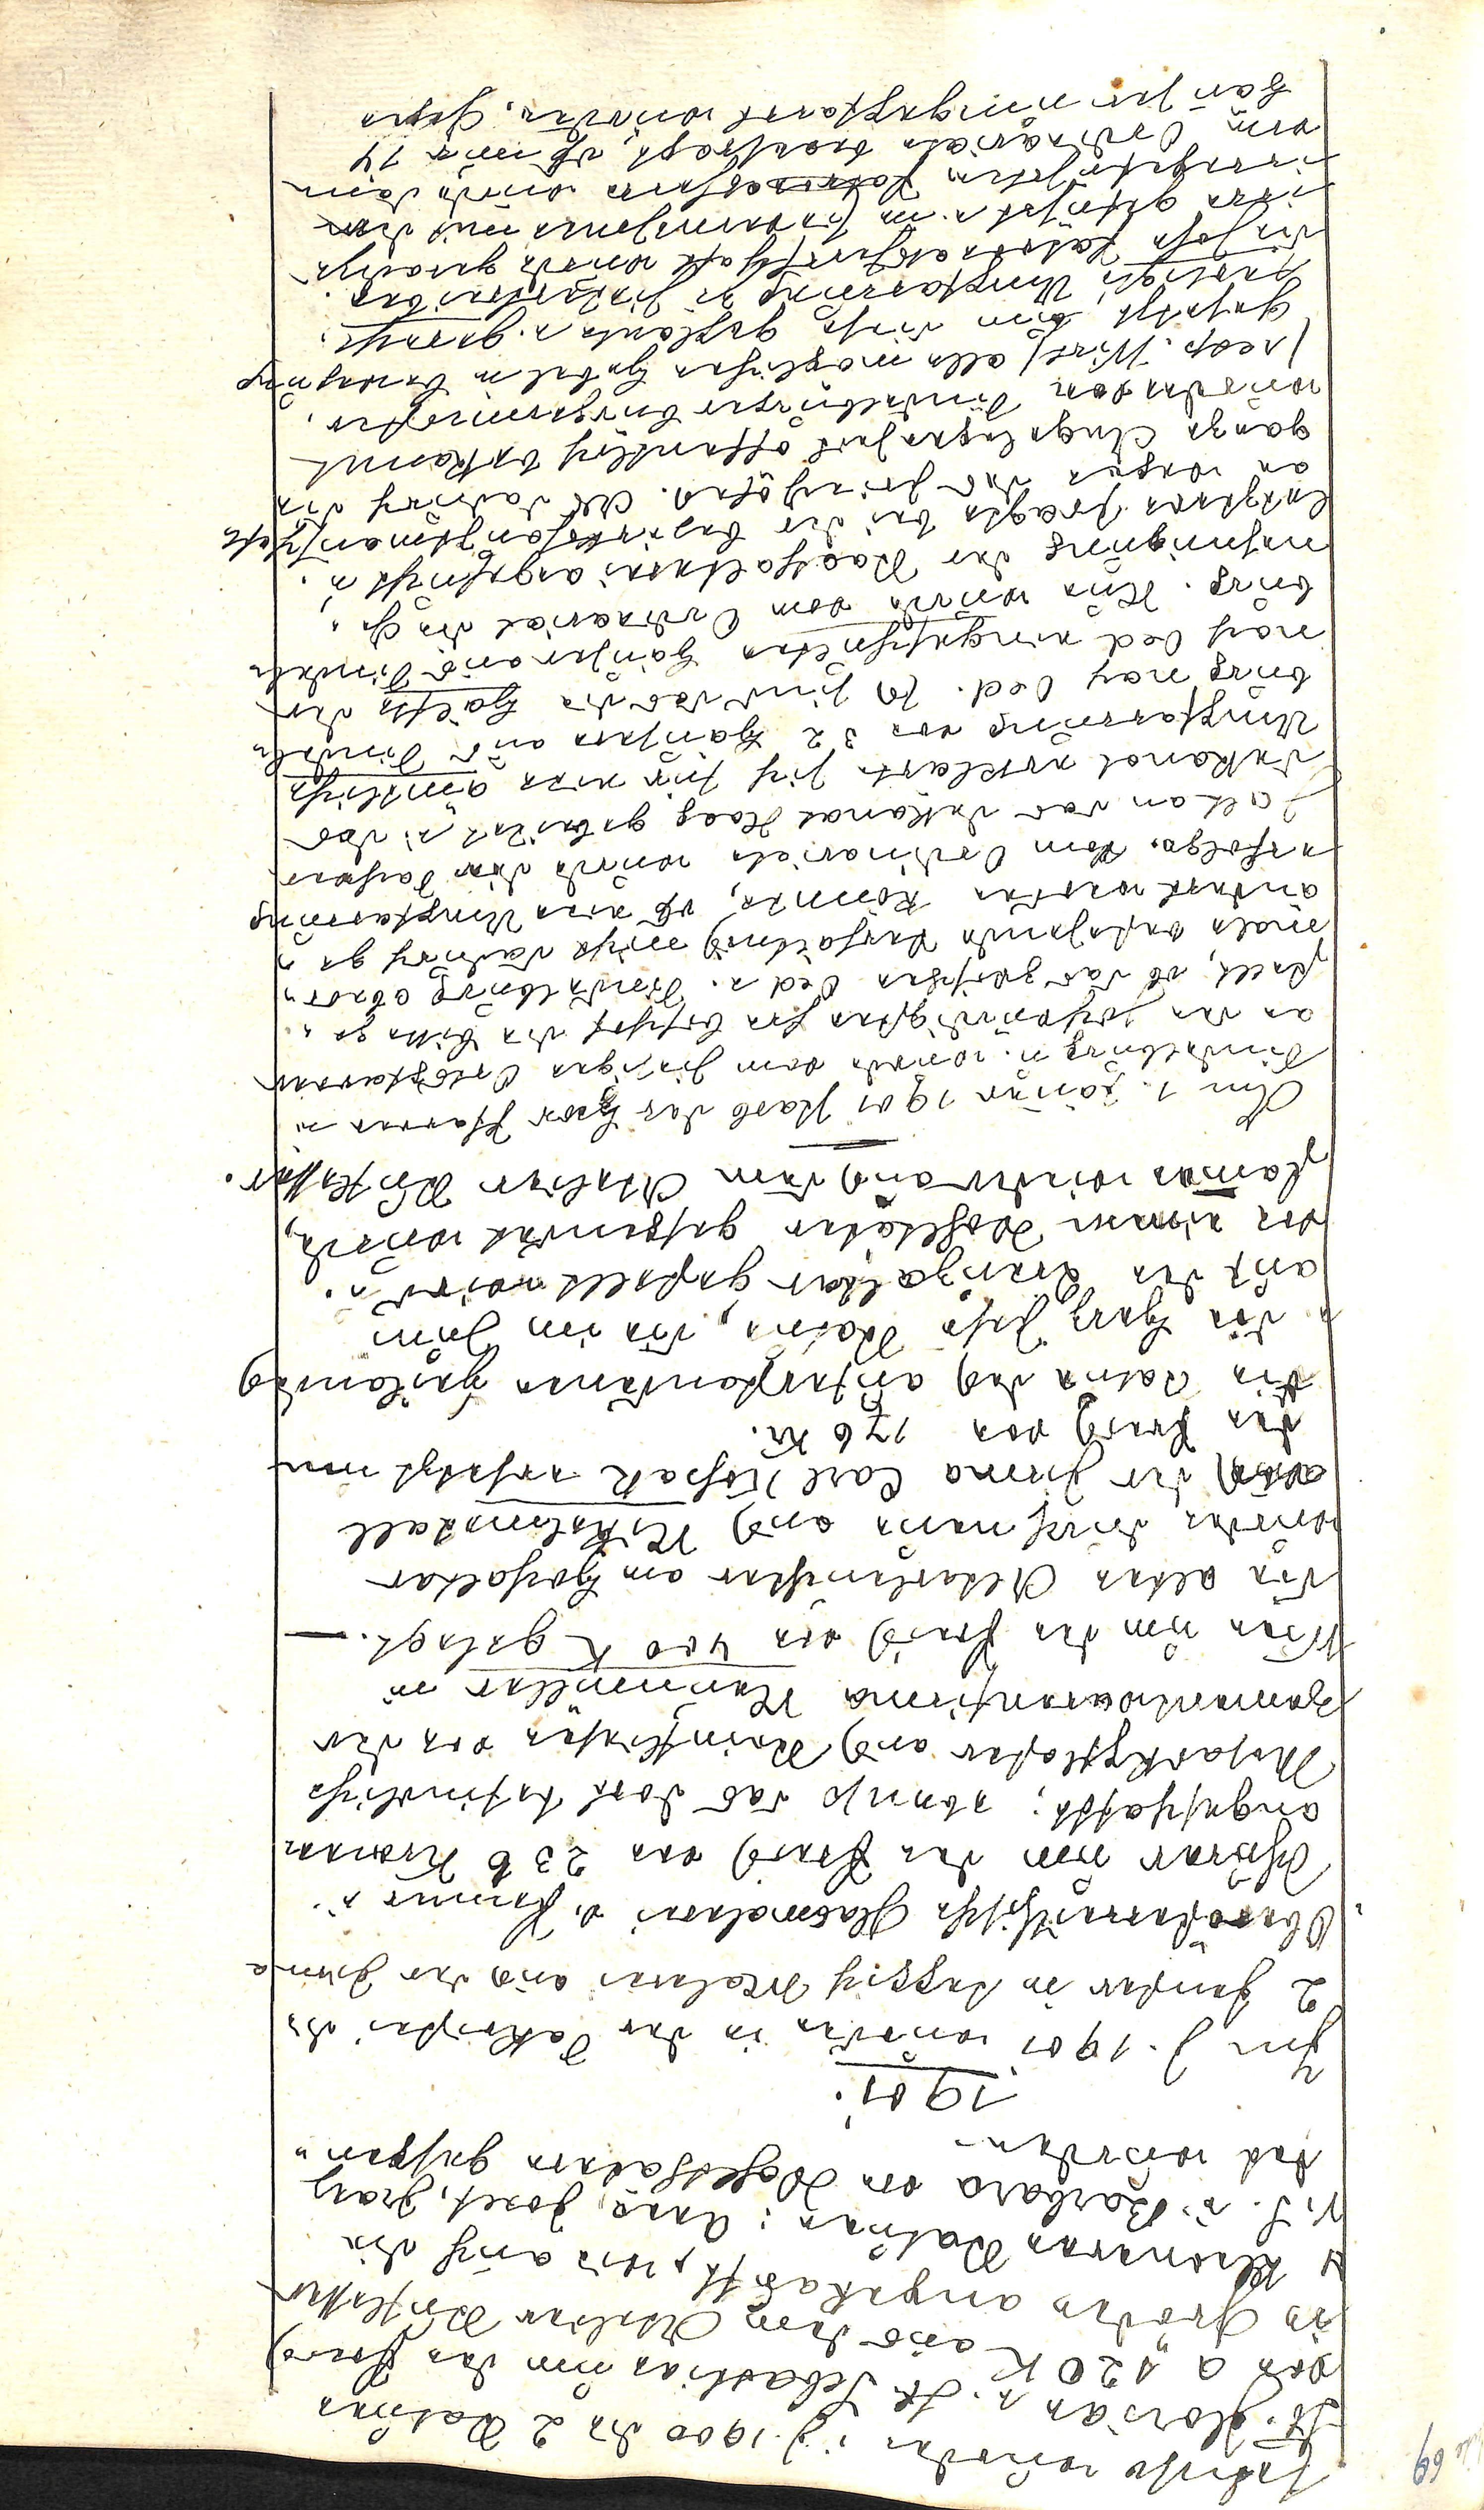 69
Ebenso wurden i. J. 1900 die 2 Statuen
St. Florian u. St. Sebastian um den Preis
von a 120 K aus dem Atelier Runggaldier
in Gröden angekauft, wie auch die
4 kleineren Statuen: Anna, Josef, Franz
v. S. u. Barbara von Wohlthätern gespen-
det worden.
1901.
Im J. 1901 wurden in der Sakristei die
2 Fenster in Teppich Malerei aus der Firma
um den Preis von 236 Kronen
angeschafft; ebenso das dort befindliche
Mosaikpflaster aus Steinfließen von der
Zementwarenfirma
Wien um den Preis von 400 K gelegt. —
Die alten Altarleuchter am Hochaltar
wurden durch neue aus Nickelmetall
aus der Firma Carl ersetzt um
den Preis von 176 Kr.
Die Statue des auferstandenen Heilandes
die Herz Jesu Statue, die im Juni
auf den Kreuzaltar gestellt wird u.
von einem Wohltäter gespendet wurde,
stammen wieder aus dem Atelier
Am 1. Jänner 1901 starb der Herr Pfarrer v.
Dindelburg u. wurde vom hiesigen Ortspfarrer
an den hochwürdigsten Herrn Bischof die Bitte ge-
stellt, ob das zwischen Oed u. Dindelburg aber-
mals bestehende Verhältnis nicht dadurch ge-
ändert werden könnte, daß eine Umpfarrung
erfolge. Vom Ordinariate wurde dieses
an das Dekanat Haag geleitet u. das
Dekanat erklärte sich für eine ämtliche
Umpfarrung von 32 Häusern aus Dindel-
burg nach Oed. Es sind das die Hälfte der
nach Oed eingeschulten Häuser aus Dindel-
burg. Nun wurde vom Ordinariat die Ge-
nehmigung der Statthalterei angesucht u.
letztere fragte bei der Bezirkshauptmannschaft
an wegen des Da dadurch die
ganze Angelegenheit öffentlich bekannt
wurde von Dindelburger Bürgermeister,
(resp. Wirt) alle möglichen Hebel in Bewegung
gesetzt, um diese geplante u. gerech-
fertigte Umpfarrung zu hintertreiben.
Diese Hälfte wurde geradezu
irre geführt u. im mit den
irregeführten wurde dann
vom Ordinariate beantragt, daß nur 14
Häuser umgepfarrt würden. Gegen